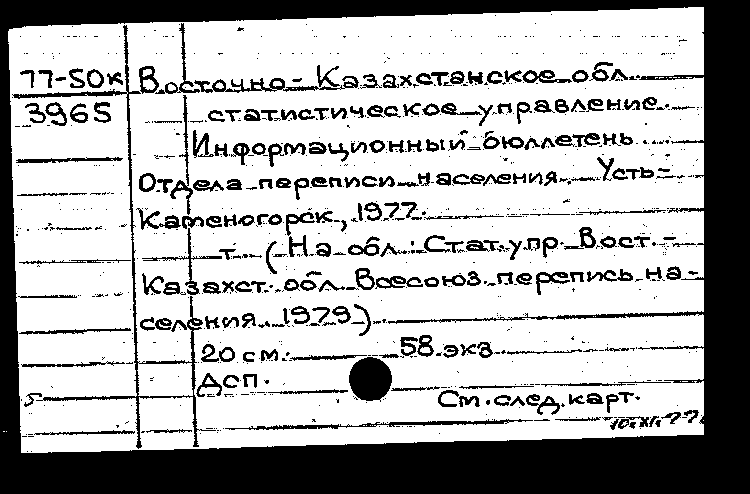 77-50к Восточно-Казахстанское обл.
3965 статистическое управление.
Информационный бюллетень
Отдела переписи населения. Усть-
Каменогорск, 1977.
т. (На обл.: Стат. упр. Вост.-
Казахст. обл. Всесоюз. перепись на-
селения 1979)
20 см. 58 экз.
ДСП.
См. след. карт.